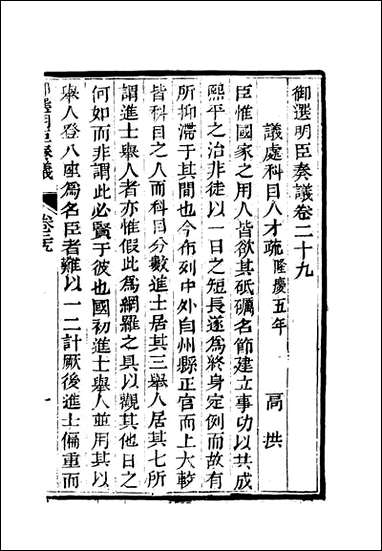 御選明臣奏議卷二十九
議處科目人才疏隆慶五年 高拱
臣惟國家之用人皆欲其砥礪名節建立事功以共成
熙平之治非徒以一日之短長遂為終身定例而故有
所抑滯于其間也今布列中外自州縣正官而上大較
皆科目之人而科目分數進士居其三舉人居其七所
謂進士舉人者亦惟假此為網羅之具以觀其他日之
何如而非謂此必賢于彼也國初進士舉人並用其以
舉人登八座為名臣者難以一二計厥後進士偏重而
御選明臣奏議 卷二十九 一